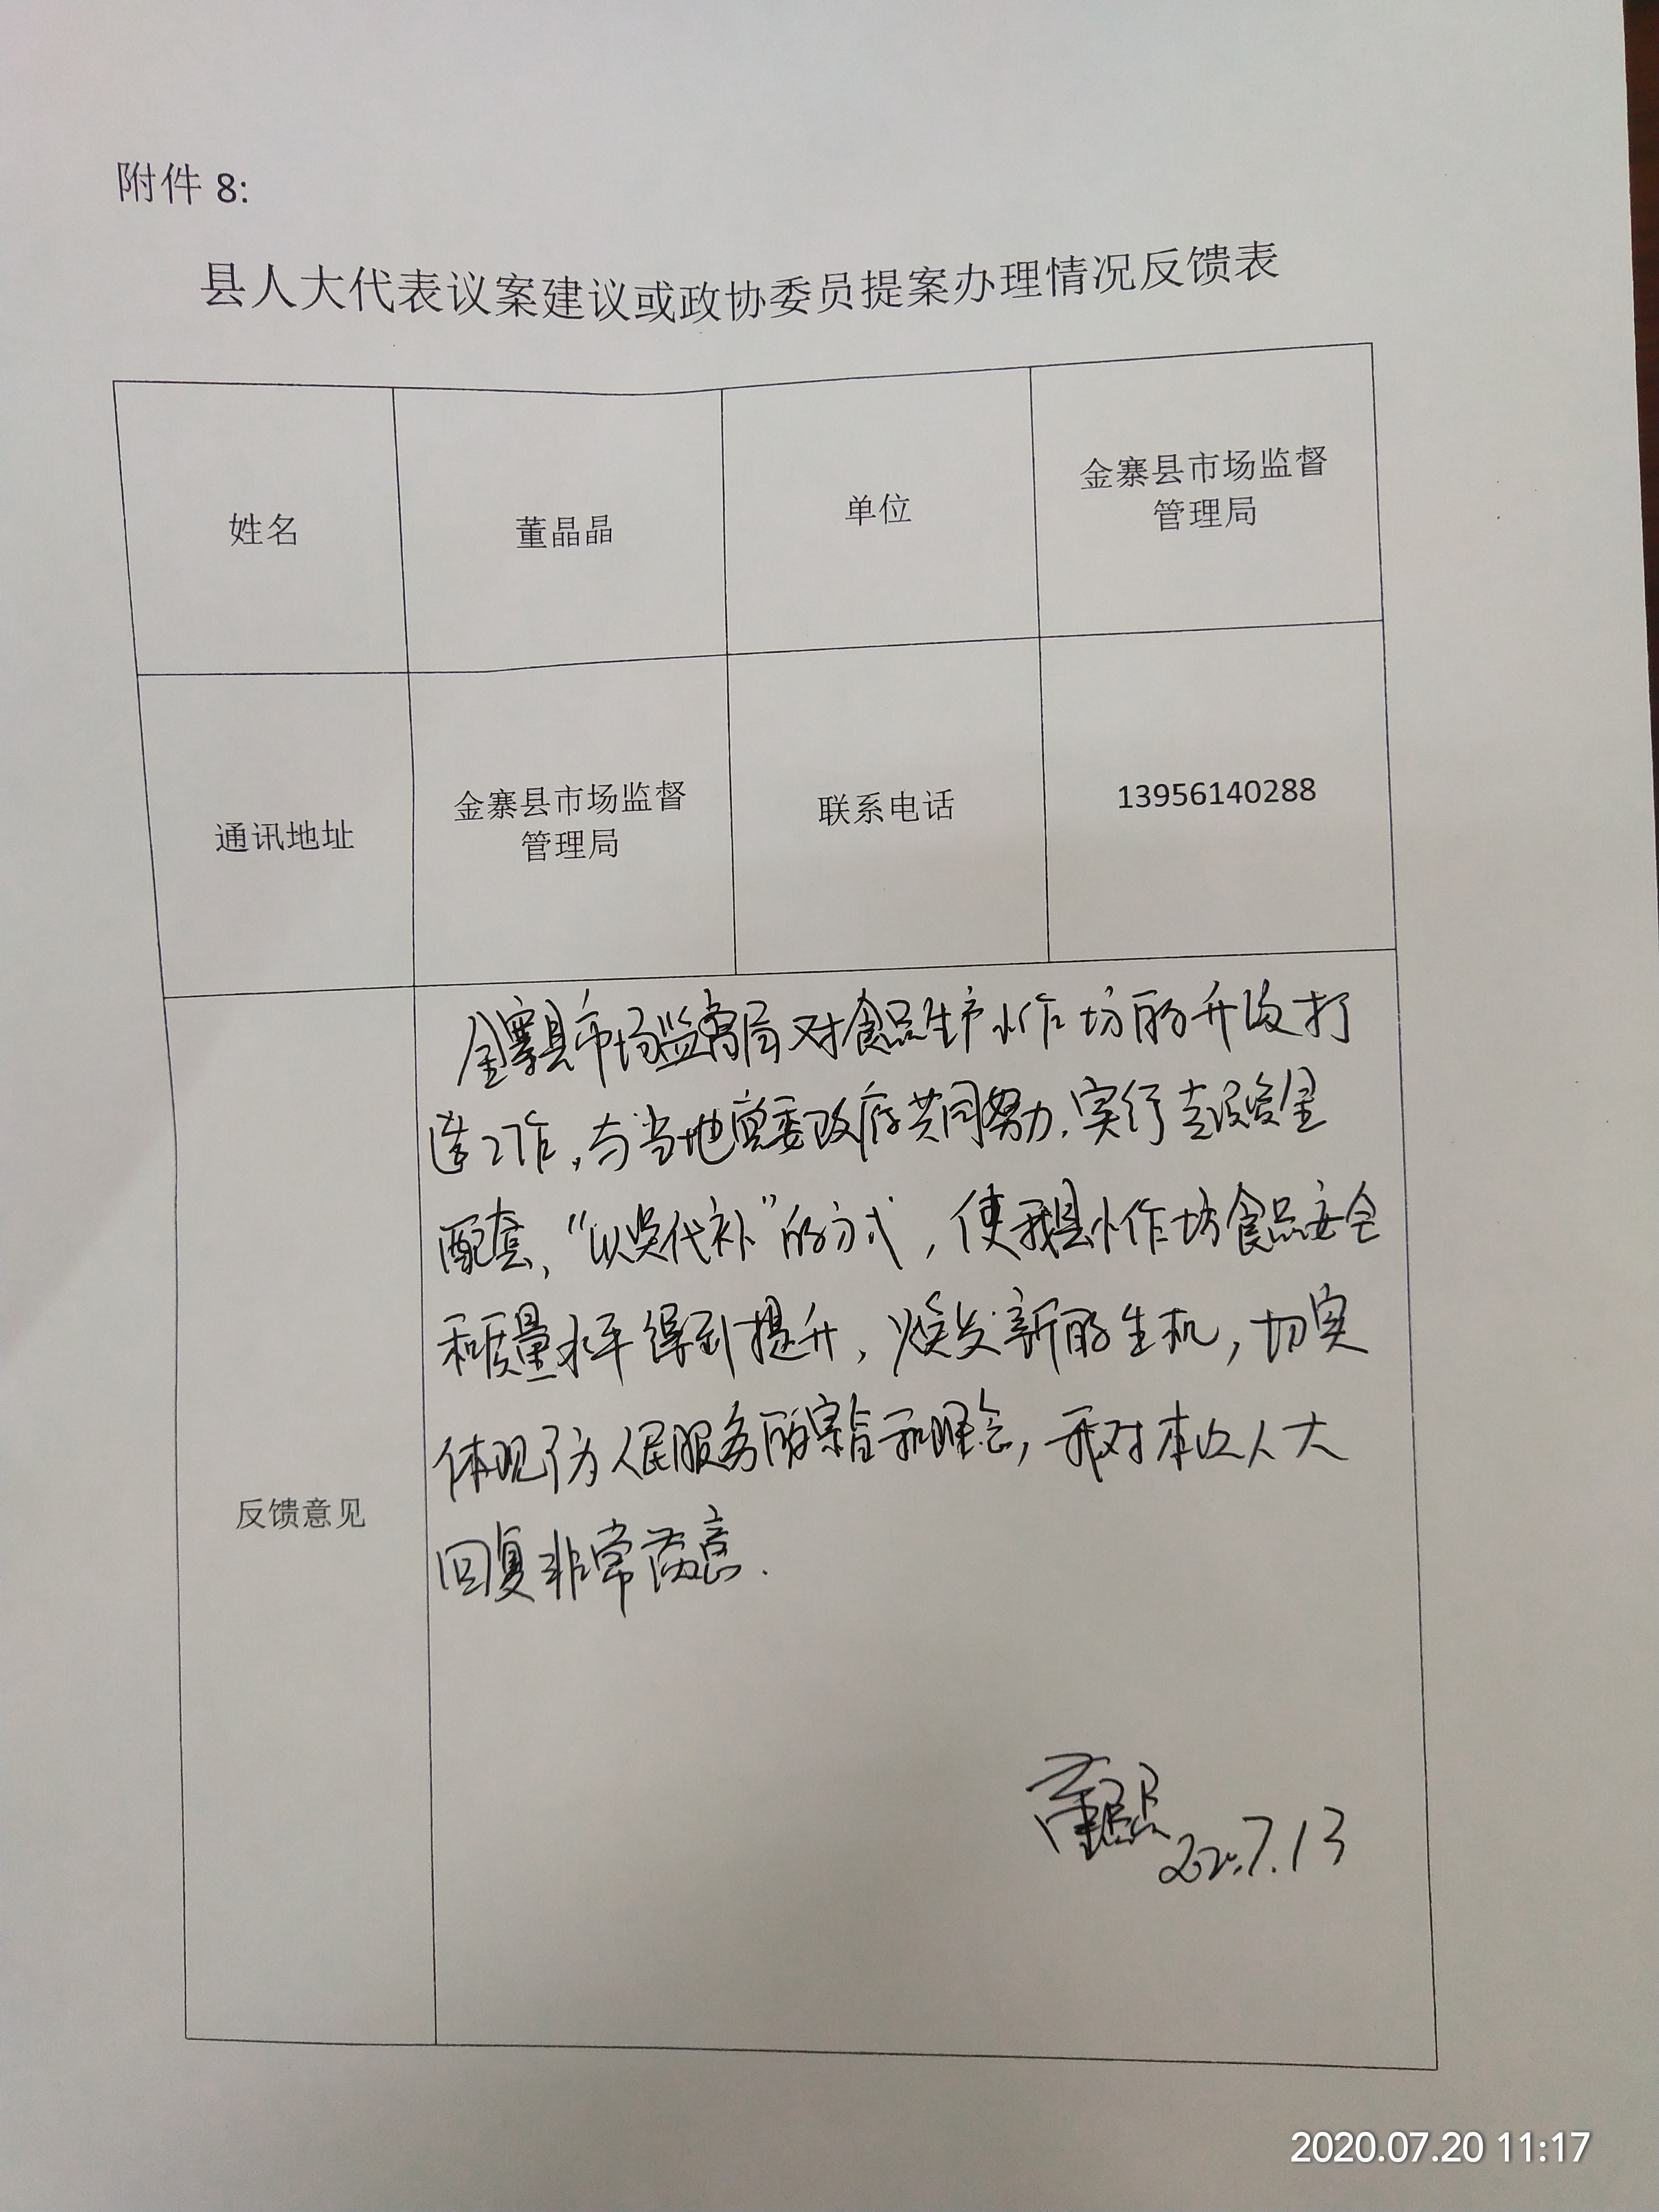 附件 8:
县人大代表议案建议或政协委员提案办理情况反馈表
姓名
董晶晶
单位
金寨县市场监督
管理局
通讯地址
金寨县市场监督
管理局
联系电话
13956140288
反馈意见
金寨县市场监督局对食品生产小作坊的升级打
造工作,与当地党委政府共同努力,实行专项资金
配套,“以奖代补”的方式,使我县小作坊食品安全
和质量水平得到提升,焕发新的生机,切实
体现了为人民服务的宗旨和理念,我对本次人大
回复非常满意.
董晶晶
2020.7.13
2020.07.20 11:17